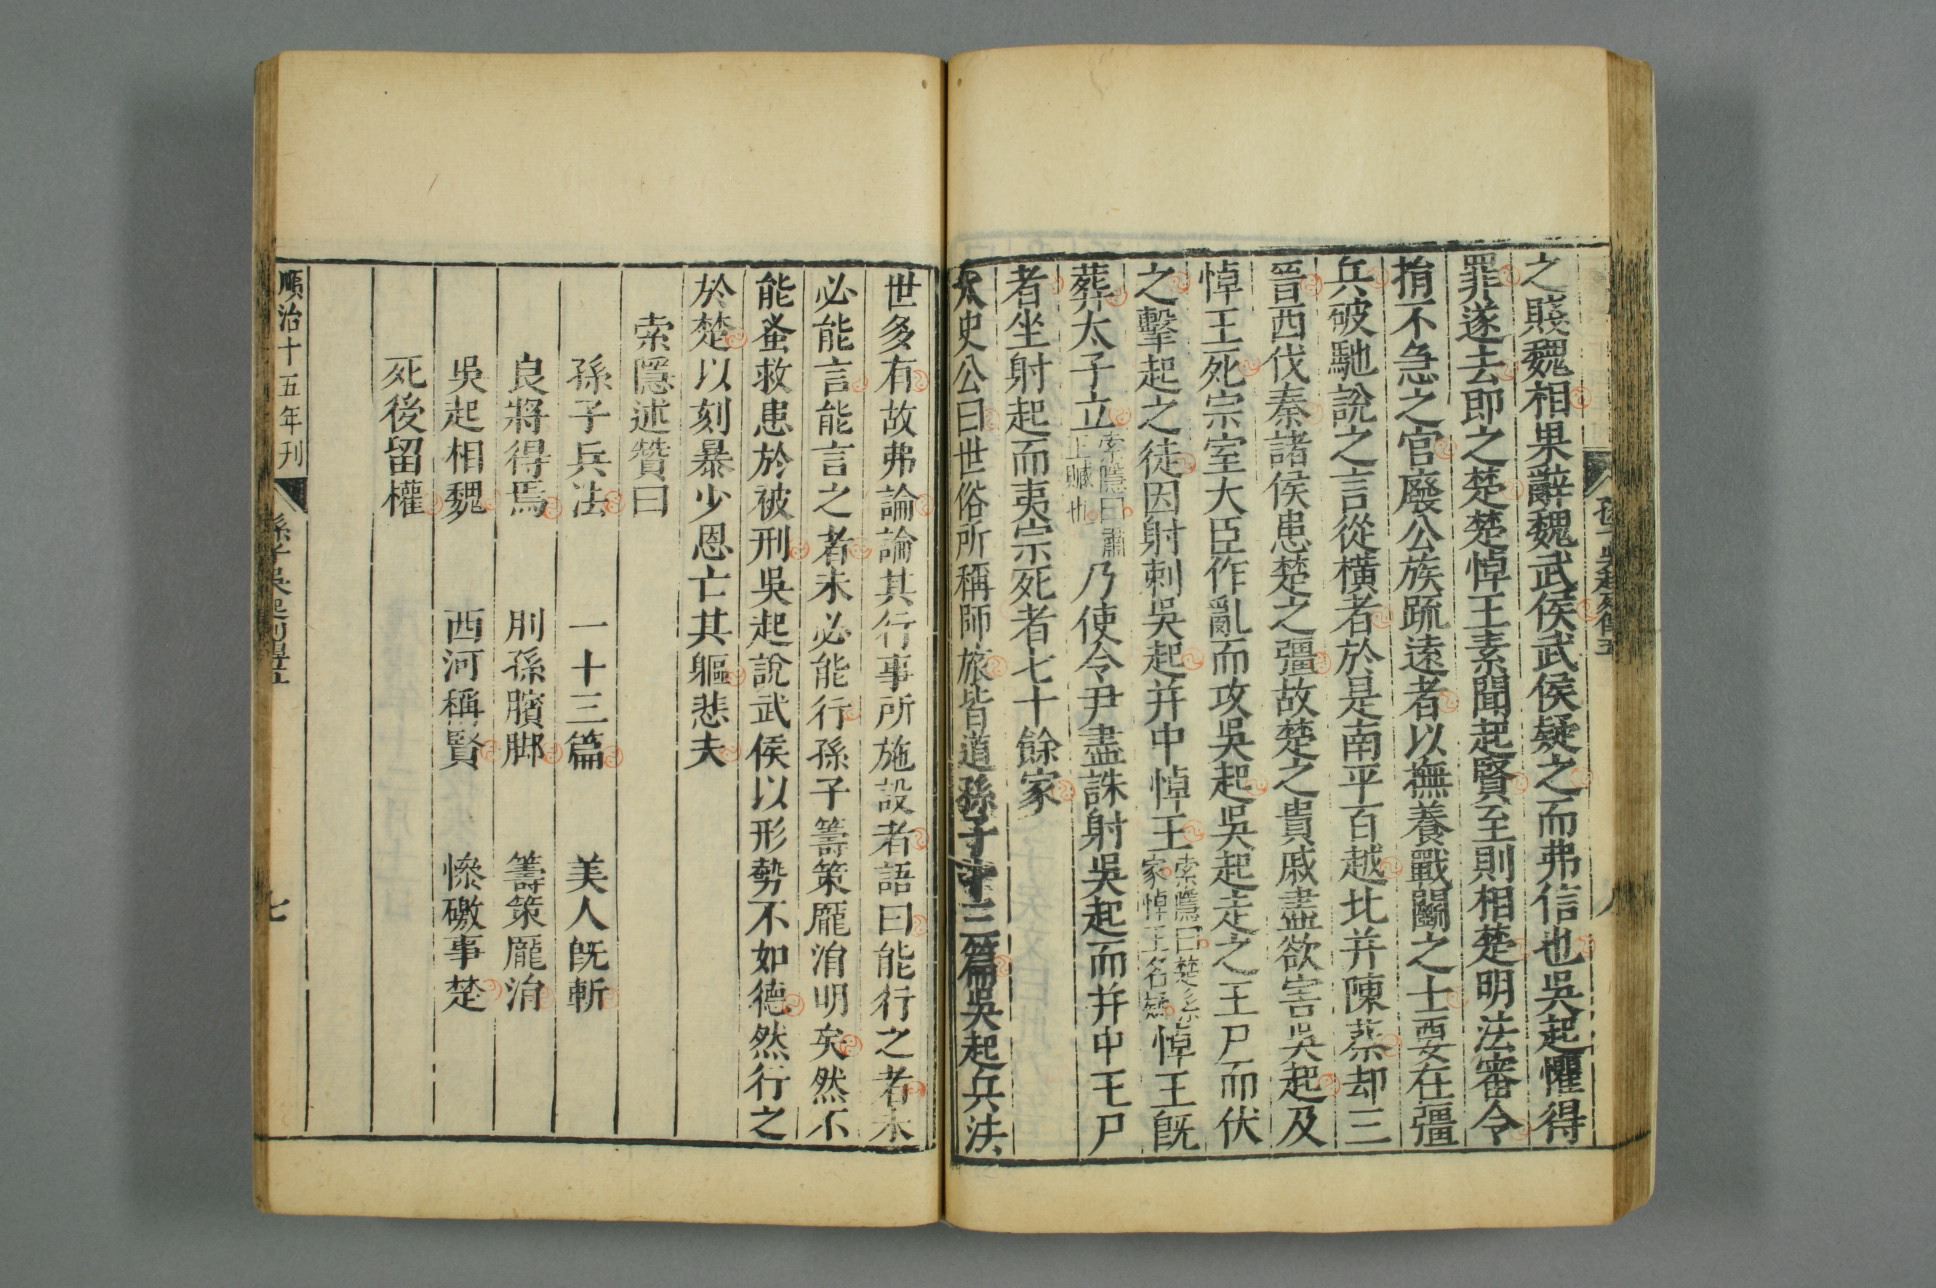 孫子吳起列傳五
之賤魏相果辭魏武侯武侯疑之而弗信也吳起懼得
罪遂去即之楚楚悼王素聞起賢至則相楚明法審令
捐不急之官廢公族疏遠者以撫養戰鬬之士要在彊
兵破馳說之言從橫者於是南平百越北并陳蔡却三
晉西伐秦諸侯患楚之彊故楚之貴戚盡欲害吳起及
悼王死宗室大臣作亂而攻吳起吳起走之王尸而伏
之擊起之徒因射刺吳起并中悼王索隱曰楚系家悼王名疑悼王既
葬太子立索隱曰肅王臧也乃使令尹盡誅射吳起而并中王尸
者坐射起而夷宗死者七十餘家
太史公曰世俗所稱師旅皆道孫子十三篇吳起兵法
世多有故弗論論其行事所施設者語曰能行之者未
必能言能言之者未必能行孫子籌策龐涓明矣然不
能蚤救患於被刑吳起說武侯以形勢不如德然行之
於楚以刻暴少恩亡其軀悲夫
索隱述贊曰
孫子兵法 一十三篇 美人既斬
良將得焉 刖孫臏脚 籌策龐涓
吳起相魏 西河稱賢 慘礉事楚
死後留權
順治十五年刊 孫子吳起列傳五 七